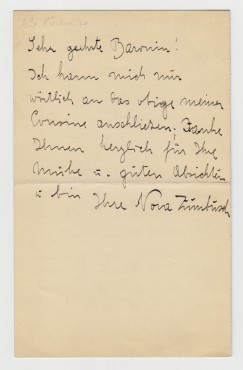 Sehr geehrte Baronin!
Ich kann mich nur
wörtlich an das obige meiner
Cousine anschliesen; Danke
Ihnen herzlich für Ihre
Mühe u. guten Absichten
u bin Ihre Nora Zumbusch